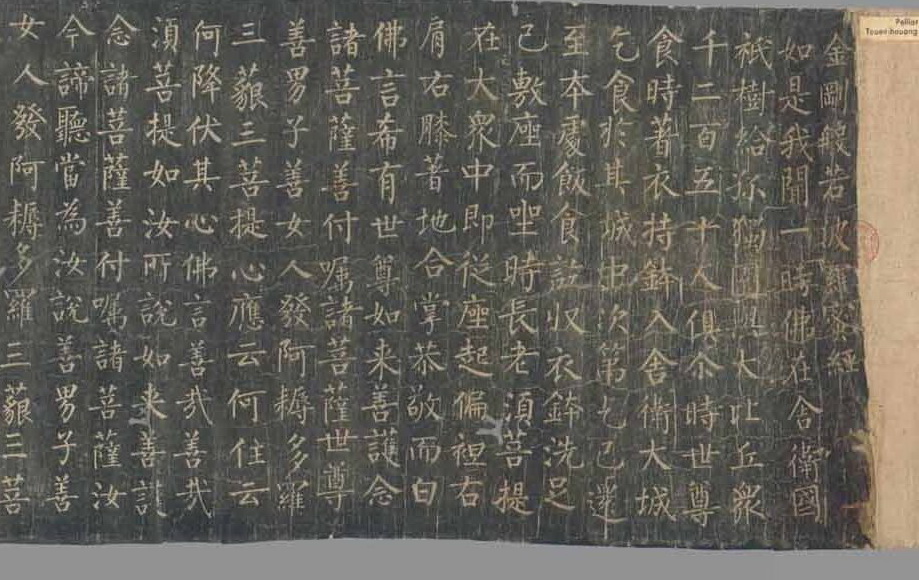 Pellio
Touen-houang
金剛般若波羅蜜經
如是我聞一時佛在舍衛國
祇樹給孤獨園與大比丘眾
千二百五十人俱尒時世尊
食時著衣持鉢入舍衛大城
乞食於其城中次第乞已還
至本處飯食訖収衣鉢洗足
已敷座而坐時長老須菩提
在大眾中即從座起偏袒右
肩右膝著地合掌恭敬而白
佛言希有世尊如来善護念
諸菩薩善付嘱諸菩薩世尊
善男子善女人發阿耨多羅
三藐三菩提心應云何住云
何降伏其心佛言善哉善哉
須菩提如汝所說如来善護
念諸菩薩善付嘱諸菩薩汝
今諦聽當為汝說善男子善
女人發阿耨多羅三藐三菩